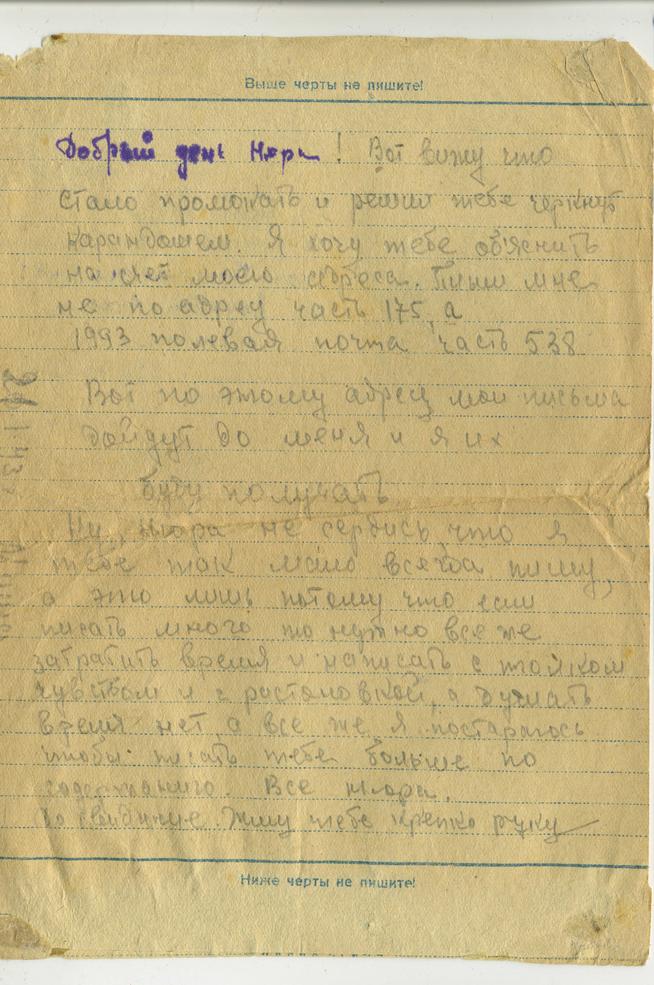 Выше черты не пишите!
Добрый день Нюра! Вот вижу что
стало промокать и решил тебе черкнут
карандашем. Я хочу тебе об'яснить
на счет моего адреса. Пиши мне
не по адресу часть 175, а
1993 полевая почта часть 538
Вот по этому адресу мои письма
дойдут до меня и я их
буду получать
Ну, Нюра не сердись, что я
тебе так мало всегда пишу,
а это лишь потому что если
писать много то нужно все же
затратить время и написать с толком
чувством и с растановкой, а думать
время нет, а все же я постараюсь
чтобы писать тебе больше по
содержанию. Все Нюра.
До свидание. Жму тебе крепко руку
Ниже черты не пишите!